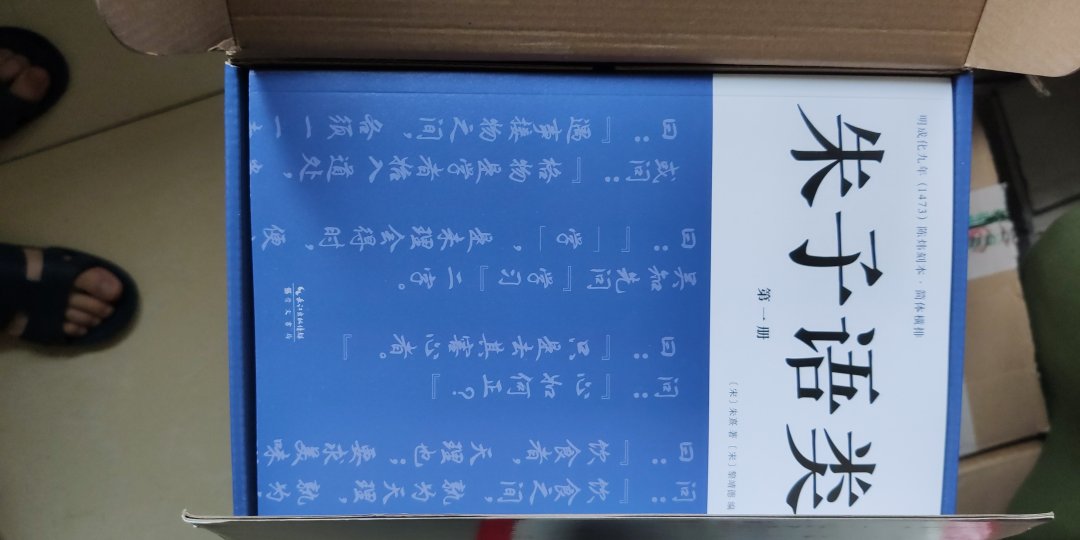 明成化九年（1473）陈炜刻本·简体横排
朱子语类
第一册
〔宋〕朱熹 著〔宋〕黎靖德 编
问：『饮食之间，孰为天理，孰为
曰：『饮食者，天理也；要求美味
问：『心如何正？』
曰：『只是去其害心者。』
吴知先问『学习』二字。
曰：『「学」，是未理会得时，便
或问：『格物是学者始入道处，
曰：『遇事接物之间，各须一一
长江出版传媒
崇文书局